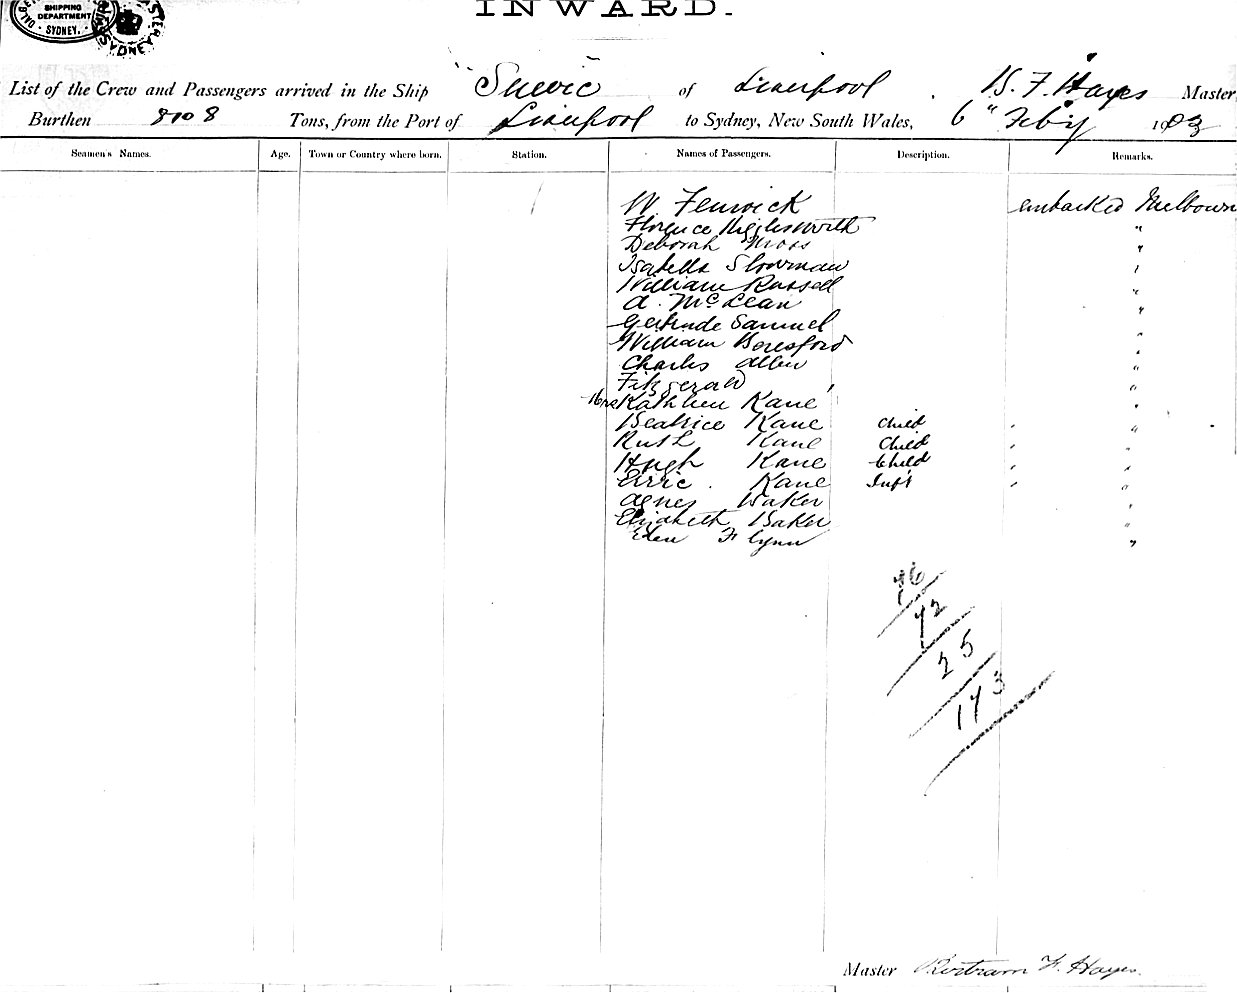 SHIPPING
DEPARTMENT
SYDNEY.
SYDNEY
INWARD.
List of the Crew and Passengers arrived in the Ship "Suevic of Liverpool B. F. Hayes Master
Burthen 8108 Tons, from the Port of Liverpool to Sydney, New South Wales, 6" Feby 1903
Seamen's Names. Age. Town or Country where born. Station. Names of Passengers. Description. Remarks.
W Fenwick embarked Melbourn
Florence Higglesworth "
Deborah Moss "
Isabella Slowman "
William Russell "
A. McLean "
Gertrude Samuel "
William Beresford "
Charles Allen "
Fitzgerald "
Mrs Kathleen Kane "
Beatrice Kane Child " "
Ruth Kane Child " "
Hugh Kane Child " "
Erric Kane Inft " "
Agnes Baker "
Elizabeth Baker "
Eden Flynn "
76
72
25
173
Master Bertram F. Hayes.